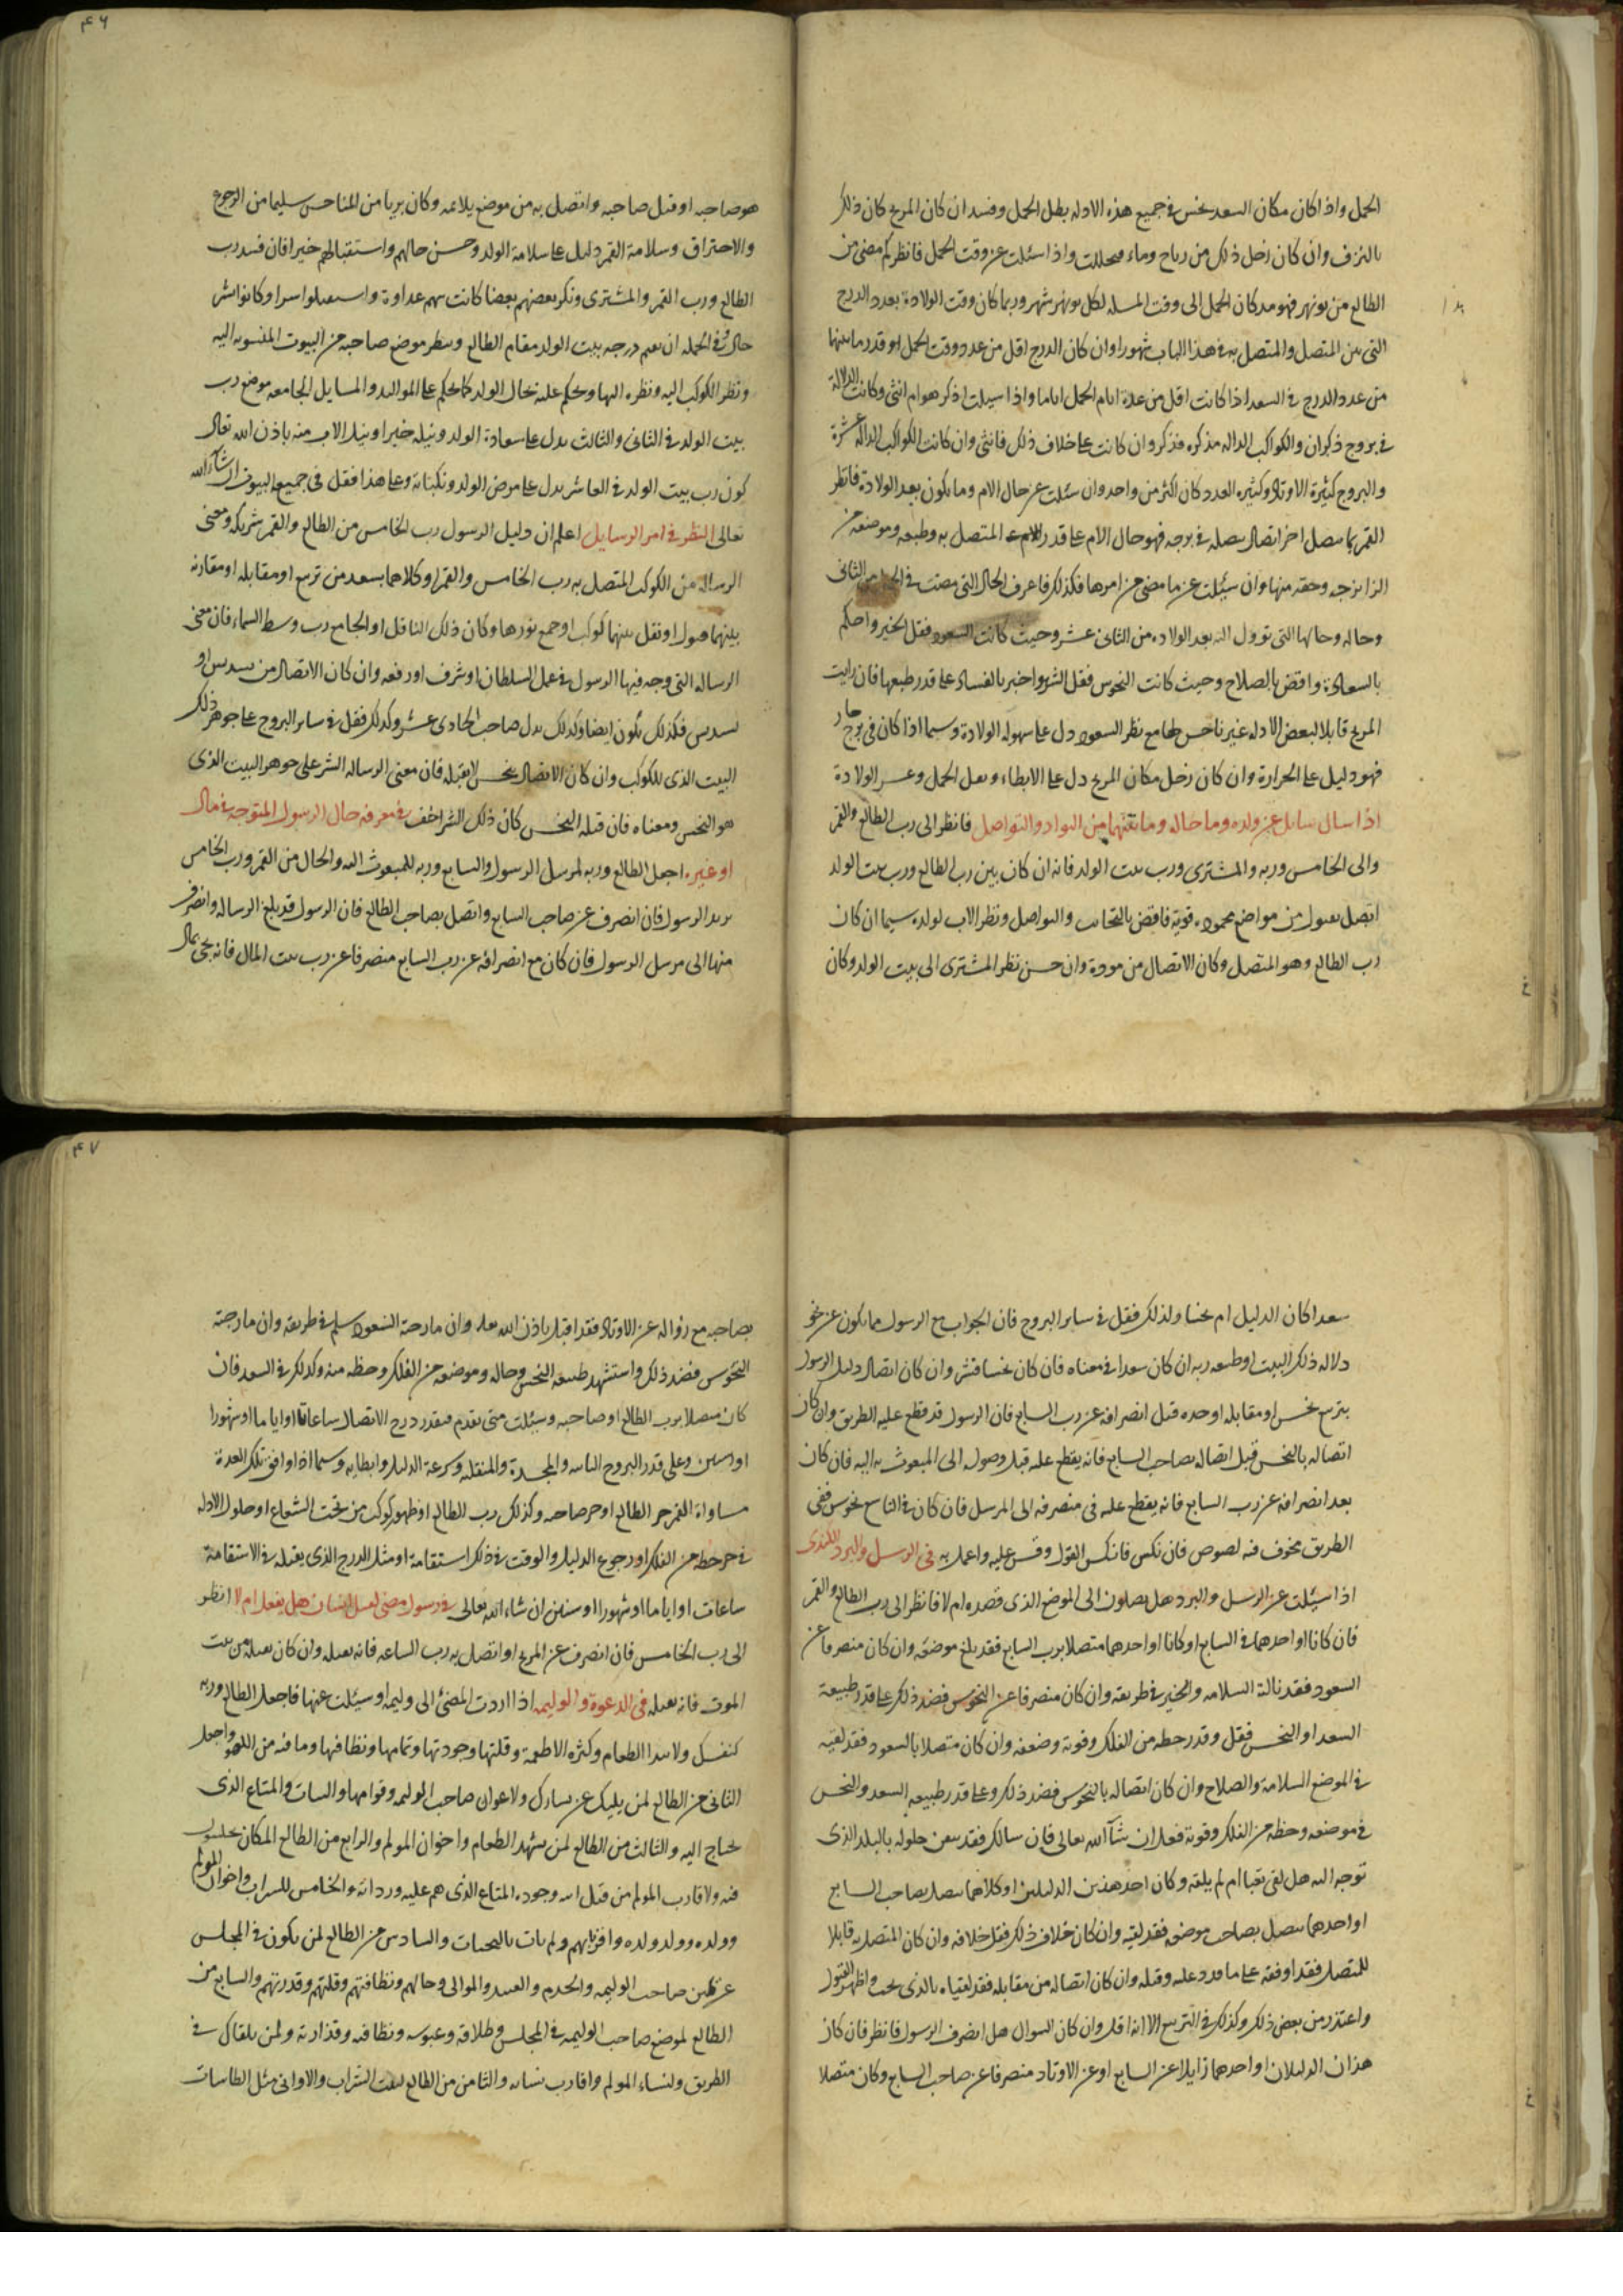 ٤٦
الحمل واذا كان مكان السعد نحس فى جميع هذه الادله بطل الحمل وفسد ان كان المريخ كان ذلك
بالنزف وان كان زحل ذلك من رياح وماء واذا سئلت عن وقت الحمل فانظر كم مضى من
الطالع من نوبهر فهو مد كان الحمل الى وقت المسله لكل نوبهر شهر وربما كان وقت الولادة بعدد الدرج
التى بين المتصل والمتصل به فى هذا الباب شهورا وان كان الدرج اقل من عدد وقت الحمل او قدر ما بينهما
من عدد الدرج فى السعد اذا كانت اقل من عدة ايام الحمل اياما واذا سيلت اذكر هو ام انثى وكانت الدلالة
فى بروج ذكران والكواكب الداله مذكره فذكر وان كانت على خلاف ذلك فانثى وان كانت الكواكب الداله عشرة
والبروج كثيرة الاوتاد وكثيره العدد كان اكثر من واحد وان سئلت عن حال الام وما يكون بعد الولادة فانظر
القمر بما يتصل اخر اتصال يتصله فى برجه فهو حال الام على قدر المتصل به وطبعه وموضعه من
الزايرجه وحقه منها وان سيئلت عن ما مضى من امرها فكذلك فاعرف الحال التى مضت فى الثانى
وحاله وحالها التى تؤول اليه بعد الولاده من الثانى عشر وحيث كانت السعود فقل الخير واحكم
بالسعادة واقض بالصلاح وحيث كانت النحوس فقل الشر واخبر بالفساد على قدر طبعها فان رايت
المريخ قابلا لبعض الادله غير ناحس لها مع نظر السعود دل على سهوله الولادة وسيما اذا كان فى برج حار
فهو دليل على الحرارة وان كان زحل مكان المريخ دل على الابطاء وثقل الحمل وعسر الولادة
اذا سال سايل عن ولده وما حاله وما بينهما من التواد والتواصل فانظر الى رب الطالع والقمر
والى الخامس وربه والمشترى ورب بيت الولد فانه ان كان بين رب الطالع ورب بيت الولد
اتصل بقبول من مواضع محموده قوية فاقض بالتحاب والتواصل ونظر الاب لولده سيما ان كان
رب الطالع وهو المتصل وكان الاتصال من مودة وان حسن نظر المشترى الى بيت الولد وكان
هو صاحبه او قبل صاحبه واتصل به من موضع يلائمه وكان بريا من المناحس سليما من الرجوع
والاحتراق وسلامة القمر دليل على سلامة الولد وحسن حالهم واستقبالهم خيرا فان فسد رب
الطالع ورب القمر والمشترى ونكر بعضهم بعضا كانت بينهم عداوة واستقبلوا شرا وكانوا شر
حال وفى الجمله ان تقيم درجه بيت الولد مقام الطالع وينظر موضع صاحبه من البيوت المنسوبه اليه
ونظر الكوكب اليه ونظره اليها ويحكم عليه بحال الولد كما يحكم على المواليد والمسايل الجامعه موضع رب
بيت الولد فى الثانى والثالث يدل على سعادة الولد ونيله خيرا او نيل الاب منه باذن الله تعالى
كون رب بيت الولد فى العاشر يدل على مرض الولد ونكباته وعلى هذا فقل فى جميع البيوت ان شآء الله
تعالى النظر فى امر الرسايل اعلم ان دليل الرسول رب الخامس من الطالع والقمر شريكه ومعنى
الرساله من الكوكب المتصل به رب الخامس والقمر او كلاهما بسعد من تربيع او مقابله او مقارنه
بينهما قبول او نقل بينهما كوكب او جمع نورهما وكان ذلك الناقل او الجامع رب وسط السماء فان معنى
الرساله التى وجه فيها الرسول فى عمل السلطان او شرف او رفعه وان كان الاتصال من تسديس او
تسديس فكذلك يكون ايضا وكذلك يدل صاحب الحادى عشر وكذلك فقل فى ساير البروج على جوهر ذلك
البيت الذى للكوكب وان كان الاتصال بنحس لا يقبله فان معنى الرساله الشر على جوهر البيت الذى
هو النحس ومعناه فان قبله النحس كان ذلك الشر اخف فى معرفه حال الرسول المتوجه فى مال
او غيره اجعل الطالع وربه لمرسل الرسول والسابع وربه للمبعوث اليه والحال من القمر ورب الخامس
يريد الرسول فان انصرف عن صاحب السابع واتصل بصاحب الطالع فان الرسول قد بلغ الرساله وانصرف
منها الى مرسل الرسول فان كان مع انصرافه عن رب السابع منصرفا عن رب بيت المال فانه يجى بمال
٤٧
سعدا كان الدليل ام نحسا ولذلك فقل فى ساير البروج فان الجواب مع الرسول مما يكون عن نحو
دلاله ذلك البيت او طبيعه ربه ان كان سعدا فى معناه فان كان نحسا فشر وان كان اتصال دليل الرسول
بتربيع نحس او مقابله او حده قبل انصرافه عن رب السابع فان الرسول قد قطع عليه الطريق وان كان
اتصاله بالنحس قبل اتصاله بصاحب السابع فانه يقطع عليه قبل وصوله الى المبعوث به اليه فان كان
بعد انصرافه عن رب السابع فانه يقطع عليه فى منصرفه الى المرسل فان كان فى التاسع نحوس ففى
الطريق مخوف فيه لصوص فان نكس فانكس القول وقس عليه واعمل به فى الرسل والبرد
اذا سيئلت عن الرسل والبرد هل يصلون الى الموضع الذى قصده ام لا فانظر الى رب الطالع والقمر
فان كانا او احدهما فى السابع او كانا او احدهما متصلا برب السابع فقد بلغ موضعه وان كان منصرفا عن
السعود فقد نالته السلامه والخير فى طريقه وان كان منصرفا عن النحوس فضد ذلك على قدر طبيعة
السعد او النحس فقل وقدر حظه من الفلك وقوته وضعفه وان كان متصلا بالسعود فقد لقيه
فى الموضع السلامة والصلاح وان كان اتصاله بالنحوس فضد ذلك وعلى قدر طبيعه السعد والنحس
فى موضعه وحظه من الفلك وقوته فعل ان شآ الله تعالى فان سالك فقد تيقن حلوله بالبلد الذى
توجه اليه هل لقى تعبا ام لم يلقه وكان احد هذين الدليلين او كلاهما يتصل بصاحب السابع
او احدهما يتصل بصاحب موضعه فقد لقيه وان كان خلاف ذلك فقل خلافه وان كان المتصل به قابلا
للمتصل فقد اوفقه على ما قدره عليه وقبله وان كان اتصاله من مقابله فقد لقياه بالذى يحب واظهر القبول
واعتذر من بعض ذلك وكذلك فى التربيع الا انه اقل وان كان السوال هل انصرف الرسول فانظر فان كان
هذان الدليلان او احدهما زايلا عن السابع او عن الاوتاد منصرفا عن صاحب السابع وكان متصلا
بصاحبه مع زواله عن الاوتاد فقد اقبل باذن الله تعالى وان مازجته السعود سلم فى طريقه وان مازجته
النحوس فضد ذلك واستشهد طبيعه النحس وحاله وموضعه من الفلك وحظه منه وكذلك فى السعد فان
كان متصلا برب الطالع او صاحبه وسئلت متى يقدم فبقدر درج الاتصال ساعات او اياما او شهورا
او سنين وعلى قدر البروج الثابته والمجسدة والمنقلبه وسرعة الدليل وابطائه وسيما اذا وافق تلك العدة
مساواة القمر جزء الطالع او جزء صاحبه وكذلك رب الطالع او ظهور كوكب من تحت الشعاع او حلول الادله
فى جزء حظه من الفلك او رجوع الدليل والوقت فى ذلك استقامة او مثل الدرج الذى يقبله فى الاستقامة
ساعات او اياما او شهورا او سنين ان شاء الله تعالى فى رسول مضى لقتل انسان هل يفعل ام لا انظر
الى رب الخامس فان انصرف عن المريخ او اتصل به رب الساعه فانه يقتله وان كان يقبله من بيت
الموت فانه يقتله فى الدعوة والوليمه اذا اردت المضى الى وليمه او سيئلت عنها فاجعل الطالع وربه
لنفسك ولابتدا الطعام وكثره الاطعمة وقلتها وجودتها وتمامها ونظافتها وما فيه من اللهو واجعل
الثانى من الطالع لمن يليك عن يسارك ولاعوان صاحب الوليمه وقوامها والنبات والمتاع الذى
يحتاج اليه والثالث من الطالع لمن يشهد الطعام واخوان المولم والرابع من الطالع المكان
فيه ولاقارب المولم من قبل ابيه وجوده المتاع الذى هم عليه ورداته والخامس للشراب واخوان المولم
وولده وولد ولده واقربايهم ولم يات بالتحيات والسادس من الطالع لمن يكون فى المجلس
عن يمين صاحب الوليمه والخدم والعبيد والموالى وحالهم ونظافتهم وقلتهم وقدرتهم والسابع من
الطالع لموضع صاحب الوليمه فى المجلس وطلاقه وعبوسه ونظافته وقذارته ولمن يلقاك فى
الطريق ولنساء المولم واقارب نسايه والثامن من الطالع لبيت الشراب والاوانى مثل الطاسات